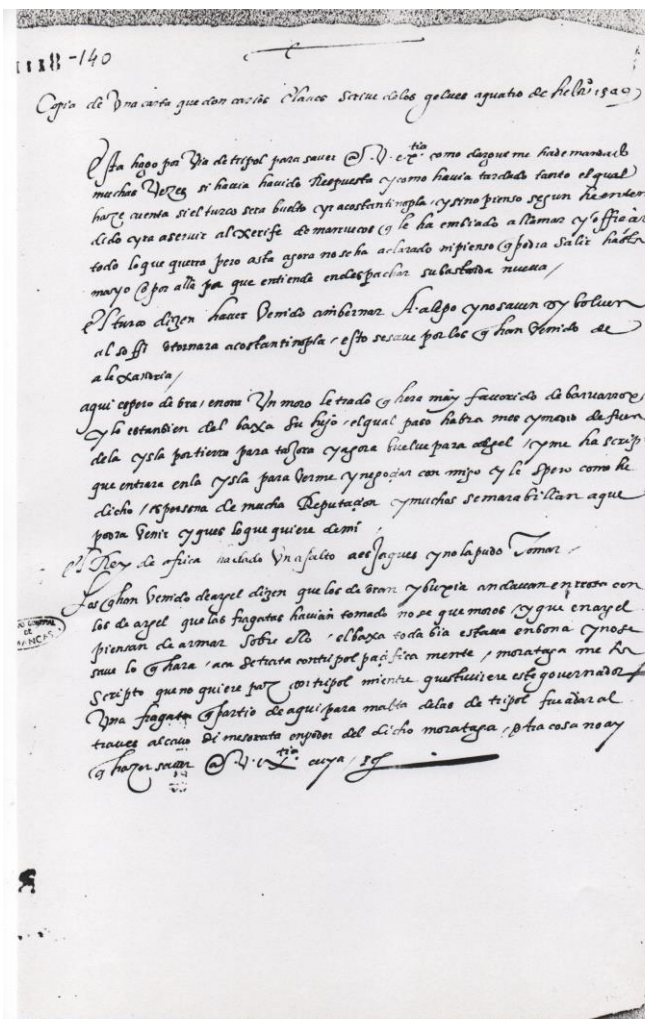 1118-140
Copia de Una carta que don carlos Scrive delos gelves a quatro de heb.ro 1549
Esta hago por via de tripol para saver @ S. V. ex.tia como dargut me ha de mandado
muchas Vezes si havia havido Respuesta y como havia tardado tanto el qual
haze cuenta si el turco sera buelto yr a costantinopla, y sino pienso segun he enten
dido yra a servir al xerife de marruecos q le ha embiado a llamar y offrecer
todo lo que querra pero asta agora no se ha aclarado ni pienso q podra Salir hasta
mayo o por alla por que entiende en despachar su bastarda nueva /
El turco dizen haver Venido ambernar A alepo y no saven sy bolver
al soffi o tornara a costantinopla / esto se save por los q han Venido de
alexandria /
aqui espero de Un moro letrado q hera muy favorido de barvarroxa
y lo es tanbien del baxa Su hijo / el qual paso habra mes y medio de fuera
dela ysla por tierra para y agora buelve para argel / y me ha scrip
que entrara en la ysla para Verme y negociar con migo y le Spero como he
dicho / es persona de mucha Reputacion y muchos se marabillan a que
podra Venir y ques lo que quiere de mi
El Rey de africa ha dado Un asalto a y no la pudo Tomar /
Los q han Venido de argel dizen que los de oran y buxia andavan en trota con
los de argel que las fragatas havian tomado no se que moros / y que en argel
piensan de armar Sobre ello / el baxa toda bia estava en bona y no se
save lo q hara / aca se trata con tripol pacifica mente / morataga me ha
Scripto que no quiere paz con tripol mientre que stuviere este governador
Una fragata q partio de aqui para malta delas de tripol fue a dar al
traves al cavo di mesorata en poder del dicho morataga / otra cosa no ay
q hazer saver @ S. V. ex.tia cuya /